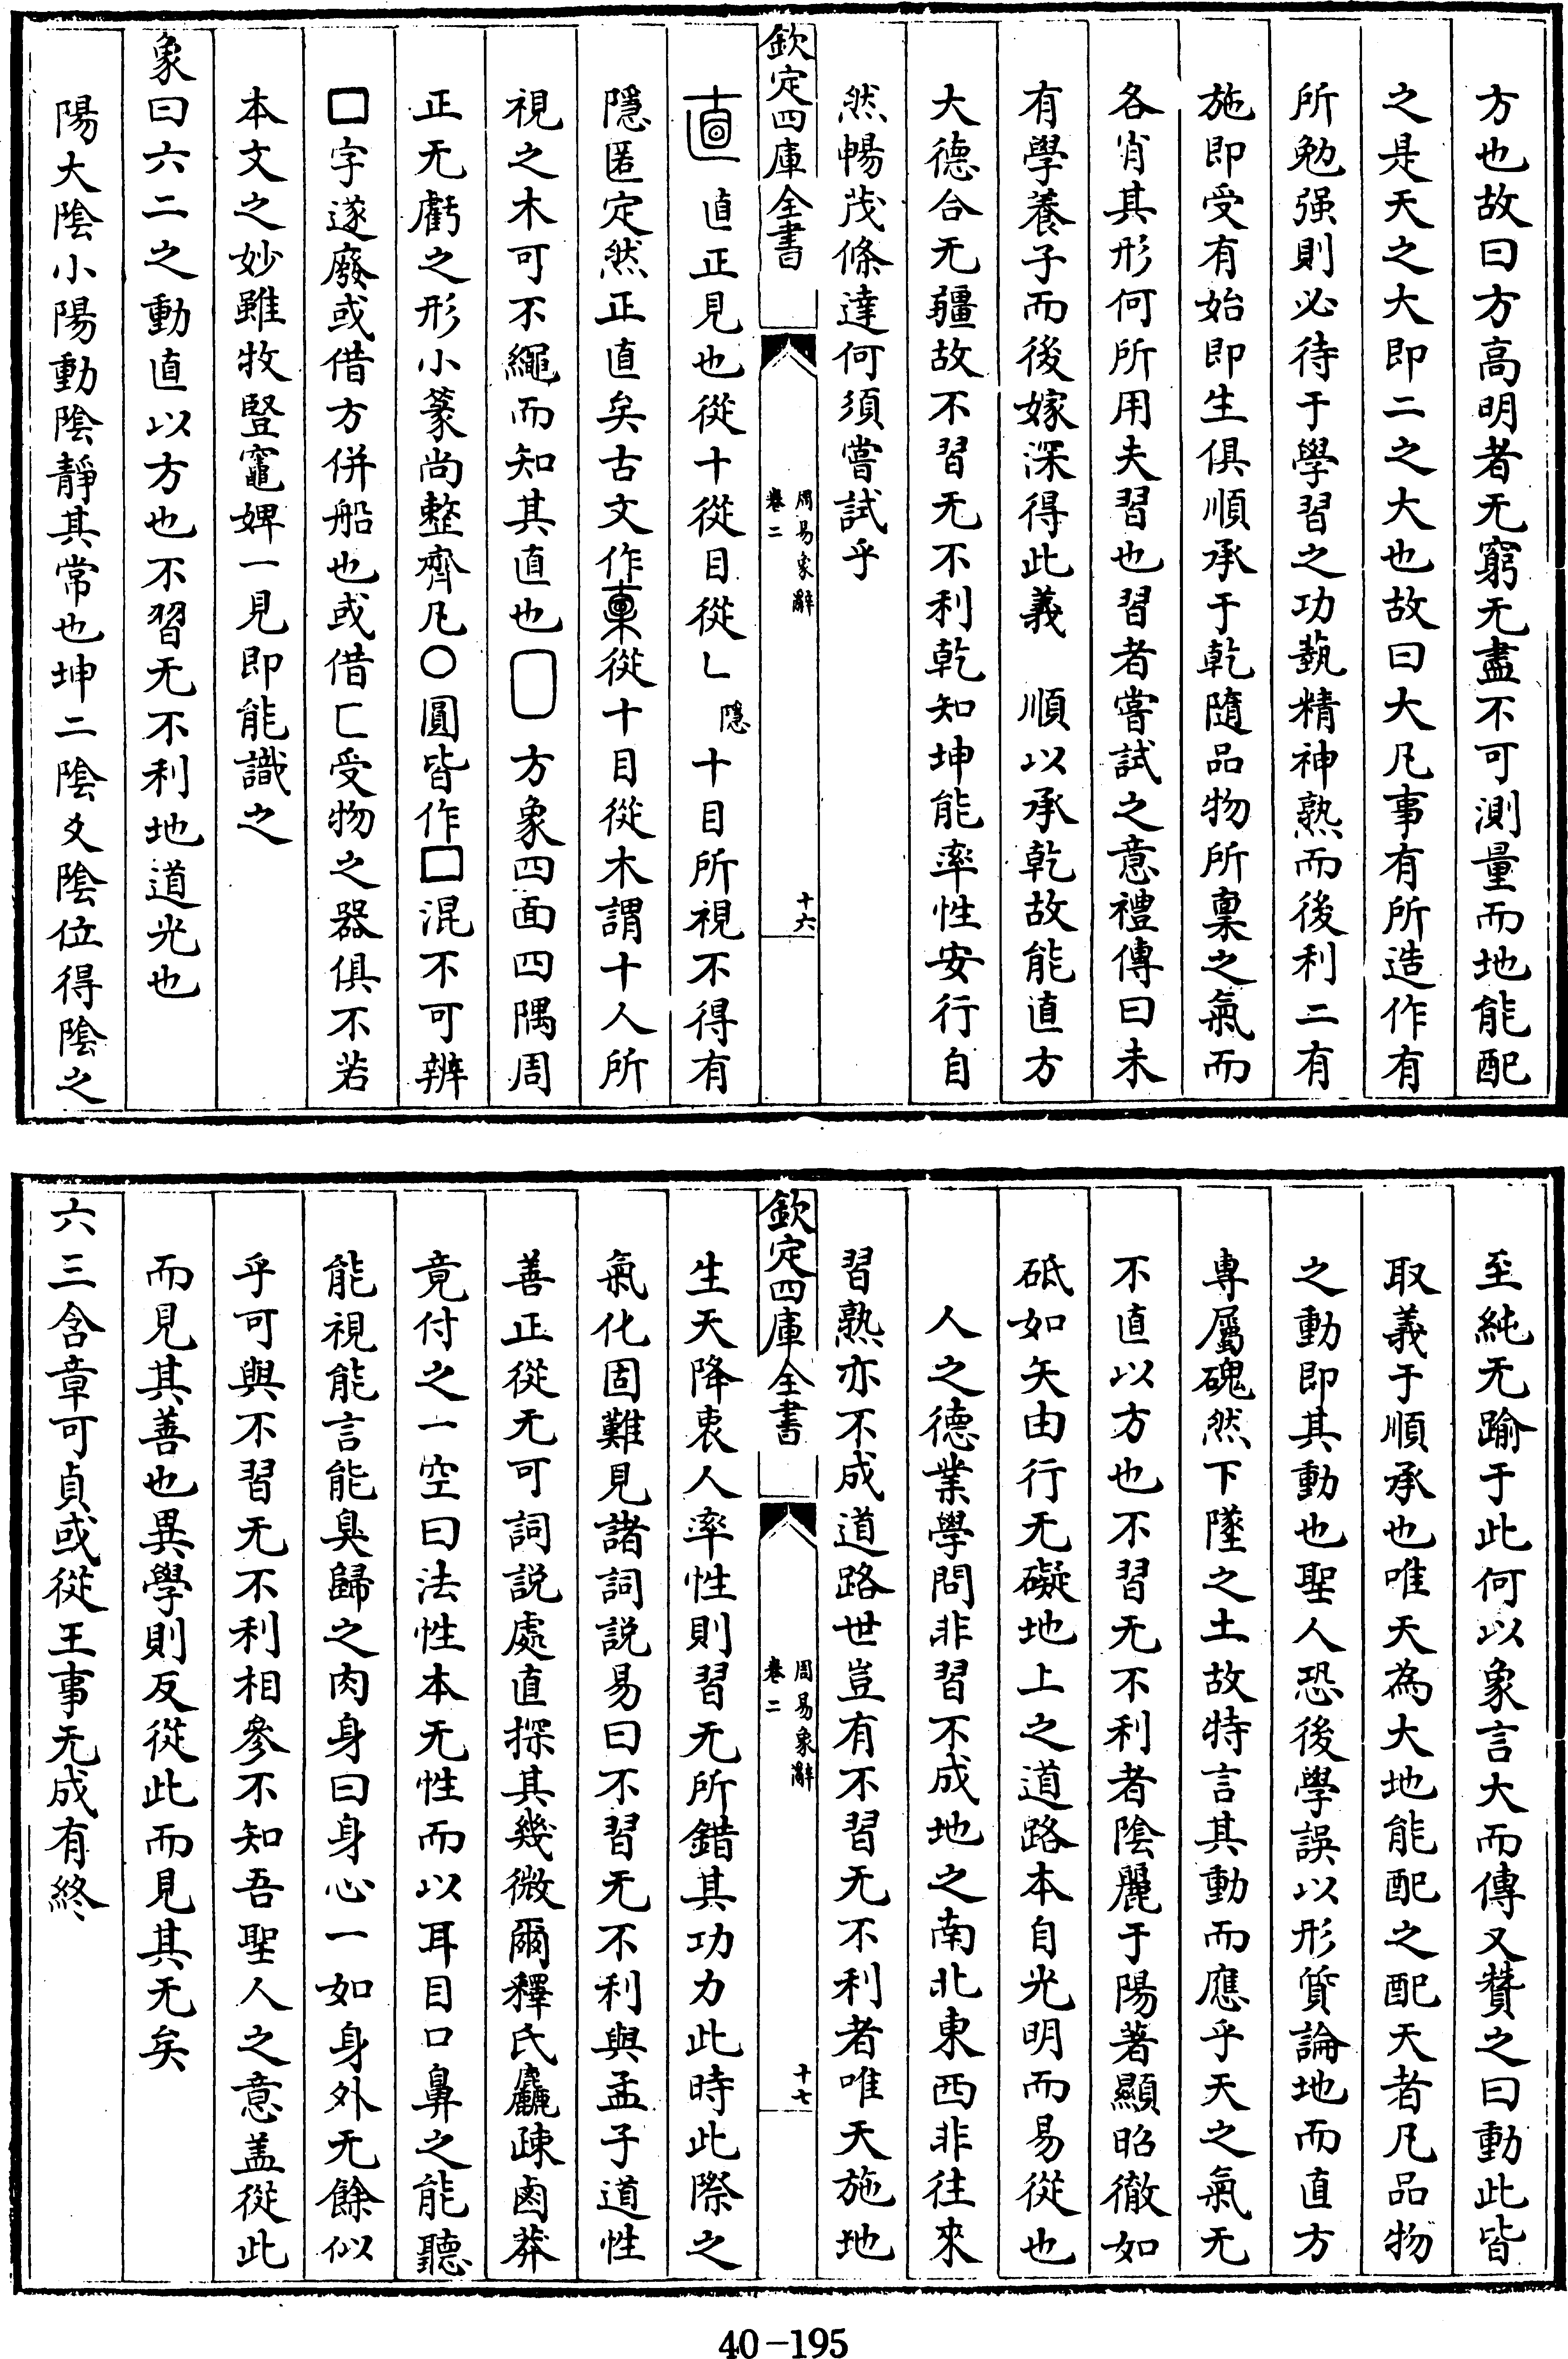 方也故曰方高明者无窮无盡不可測量而地能配
之是天之大即二之大也故曰大凡事有所造作有
所勉强則必待于學習之功蓺精神熟而後利二有
施即受有始即生俱順承于乾隨品物所稟之氣而
各肖其形何所用夫習也習者嘗試之意禮傳曰未
有學養子而後嫁深得此義　順以承乾故能直方
大德合无疆故不習无不利乾知坤能率性安行自
然暢茂條達何須嘗試乎
欽定四庫全書
周易象辭
卷二
十六
直正見也從十從目從乚隱十目所視不得有
隱匿定然正直矣古文作𣓀從十目從木謂十人所
視之木可不繩而知其直也□方象四面四隅周
正无虧之形小篆尚整齊凡○圓皆作□混不可辨
□字遂廢或借方併船也或借匚受物之器俱不若
本文之妙雖牧豎竈婢一見即能識之
象曰六二之動直以方也不習无不利地道光也
陽大陰小陽動陰靜其常也坤二陰爻陰位得陰之
至純无踰于此何以象言大而傳又贊之曰動此皆
取義于順承也唯天為大地能配之配天者凡品物
之動即其動也聖人恐後學誤以形質論地而直方
專屬磈然下墜之土故特言其動而應乎天之氣无
不直以方也不習无不利者陰麗于陽著顯昭徹如
砥如矢由行无礙地上之道路本自光明而易從也
人之德業學問非習不成地之南北東西非往來
習熟亦不成道路世豈有不習无不利者唯天施地
欽定四庫全書
周易象辭
卷二
十七
生天降衷人率性則習无所錯其功力此時此際之
氣化固難見諸詞説易曰不習无不利與孟子道性
善正從无可詞説處直探其幾微爾釋氏麤疎鹵莽
竟付之一空曰法性本无性而以耳目口鼻之能聽
能視能言能臭歸之肉身曰身心一如身外无餘似
乎可與不習无不利相參不知吾聖人之意盖從此
而見其善也異學則反從此而見其无矣
六三含章可貞或從王事无成有終
40-195